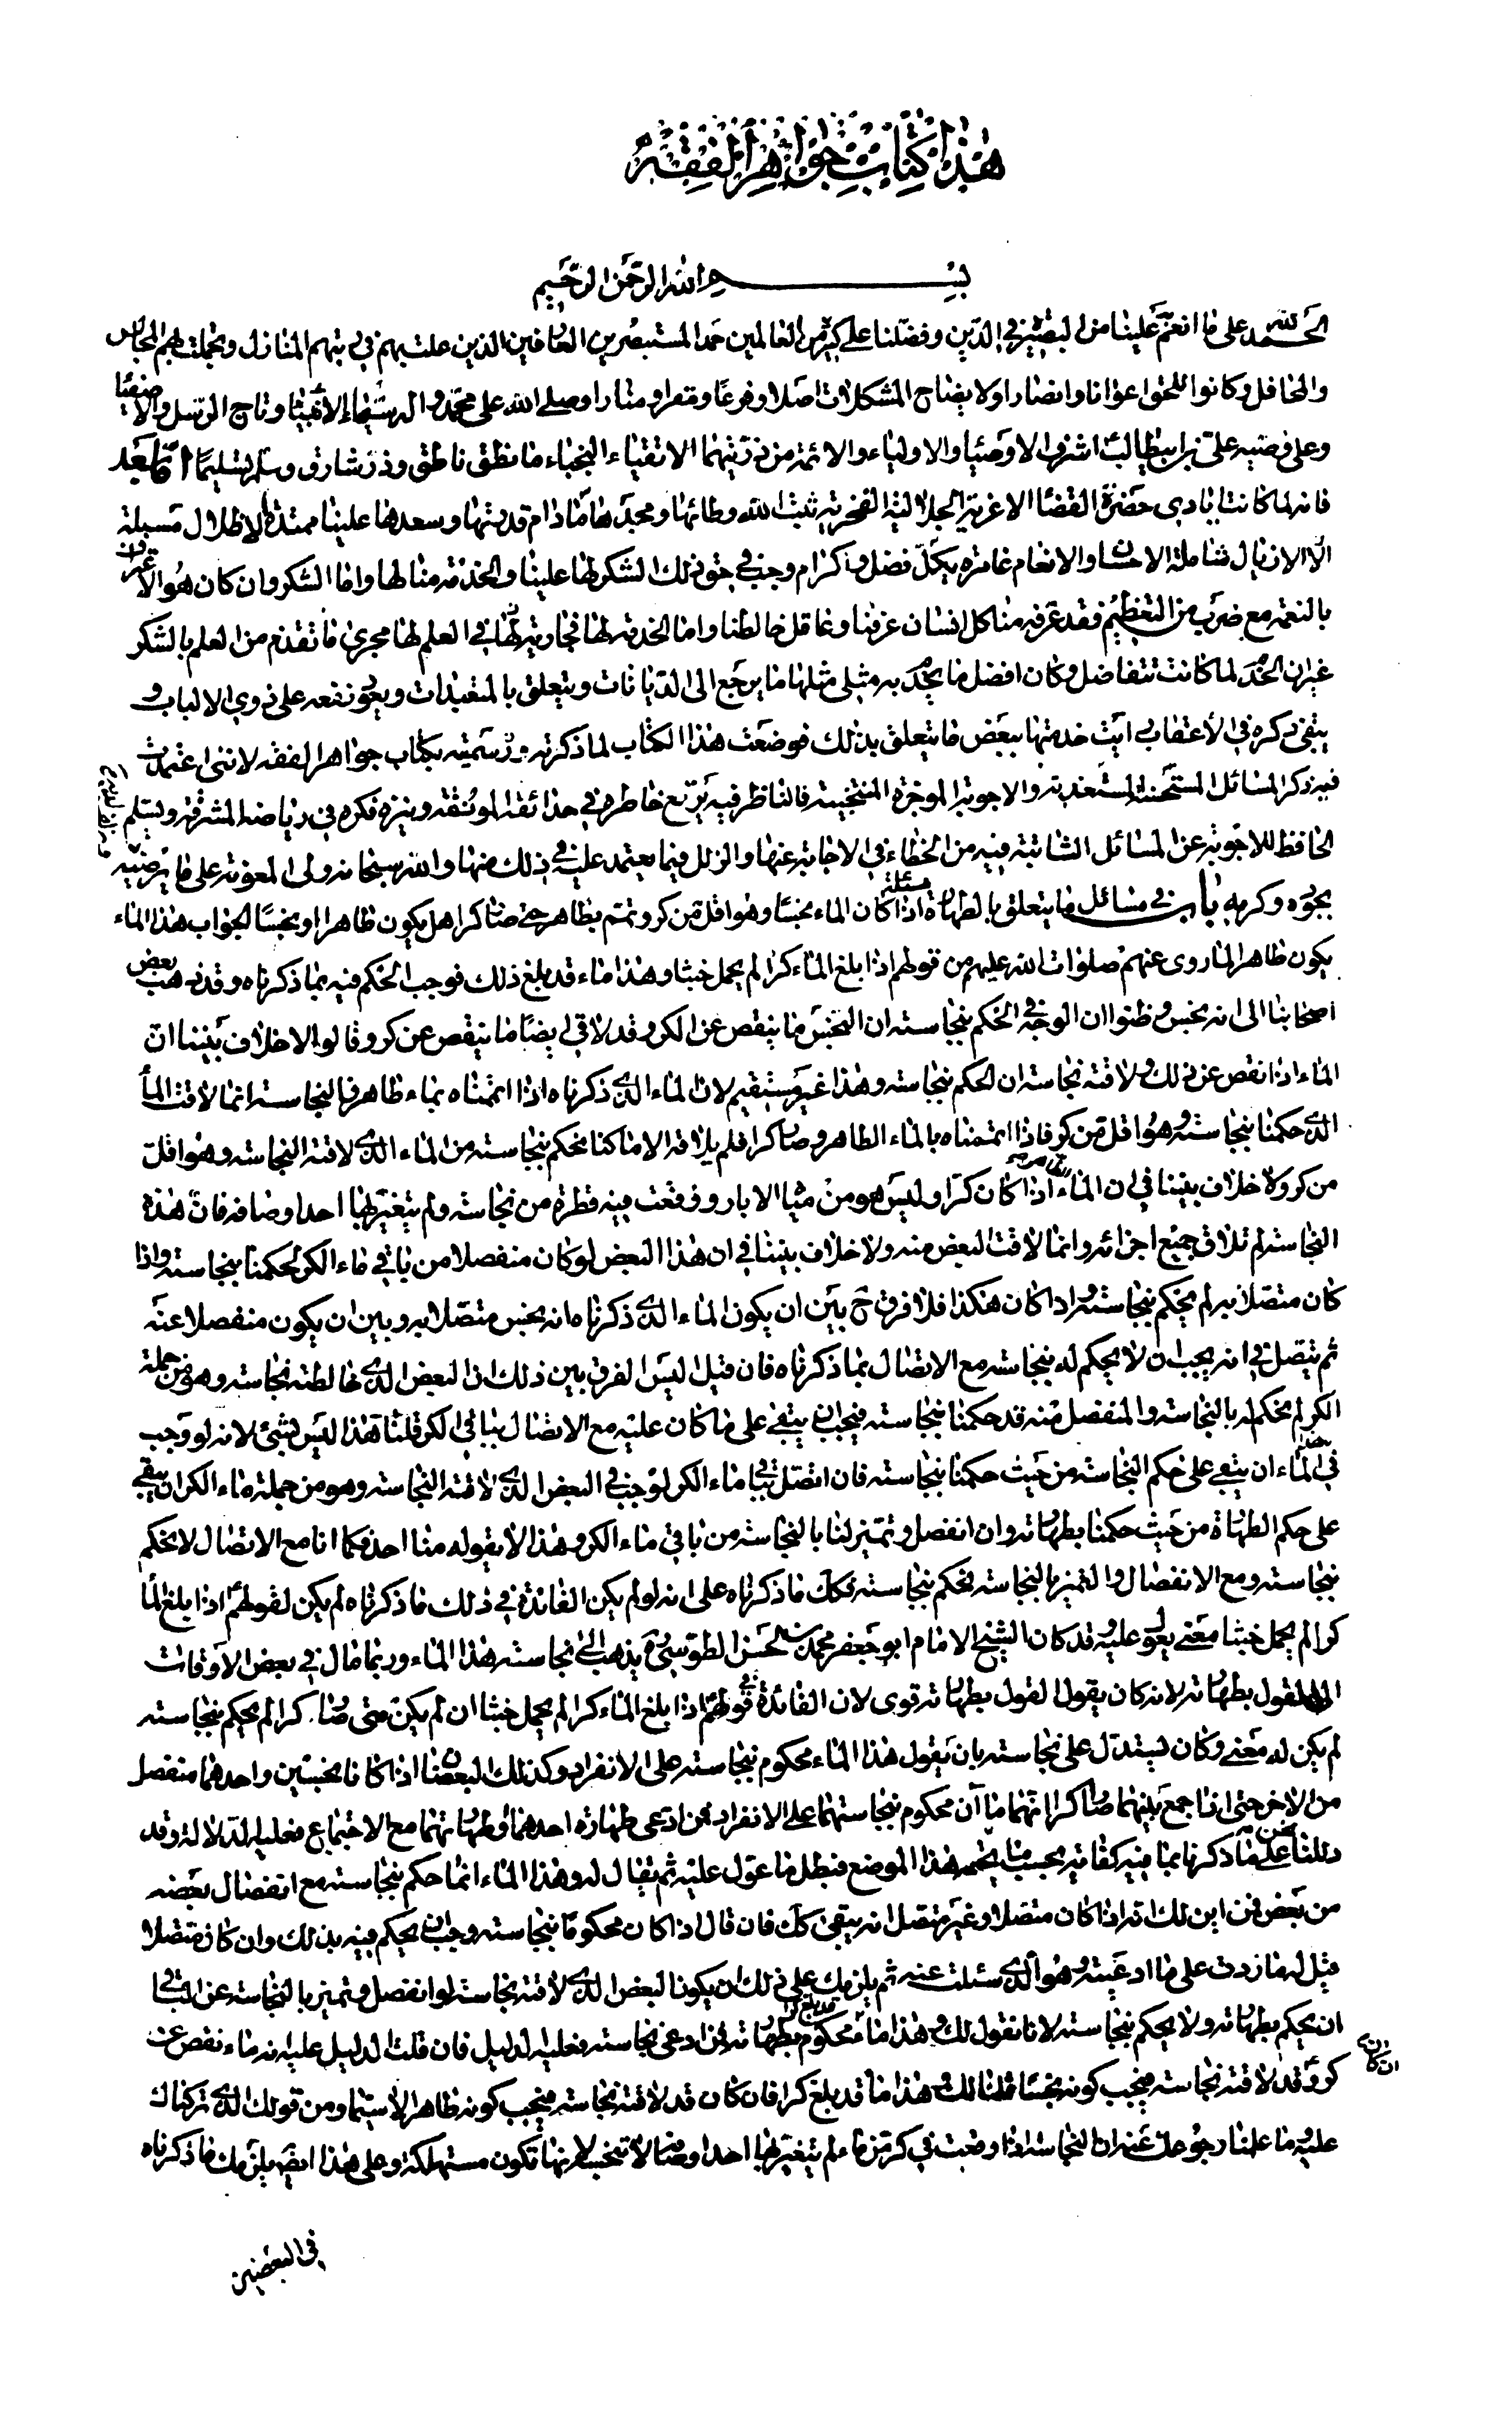 هذا كتاب جواهر الفقه
بسم الله الرحمن الرحيم
الحمد لله على ما انعم علينا من البصيرة في الدين وفضلنا على كثير من العالمين حمد المستبصرين العارفين الذين علت بهم في رتبهم المنازل وتجملت بهم المجالس
والمحافل وكانوا للحق اعوانا وانصارا ولايضاح المشكلات اصلا وفرعا ومنارا وصلى الله على محمد واله سيد الانبياء وتاج الرسل والاصفياء
وعلى وصيه علي بن ابيطالب اشرف الاوصياء والاولياء والائمة من ذريتهما الاتقياء النجباء ما نطق ناطق وذر شارق وسلم تسليما اما بعد
فانه لما كانت ايادي حضرة القضاء الاغرية الجلالية الفخرية ثبت الله وطائها ومجدها ما دام قدرتها وسعدها علينا ممتدة الاظلال مسبلة
الاذيال شاملة الاحسان والانعام غامرة بكل فضل واكرام وجب في حق ذلك الشكر لها علينا والخدمة منا لها واما الشكر وان كان هو الاعتراف
بالنعمة مع ضرب من التعظيم فقد عرفه منا كل انسان عرفنا وعاقل خالطنا واما الخدمة لها فجارية لها في العلم لها مجرى ما تقدم من العلم بالشكر
غير ان الخدم لما كانت تتفاضل وكان افضل ما يخدم به مثلي مثلها ما يرجع الى الديانات ويتعلق بالتعبدات ويعود نفعه على ذوي الالباب و
يبقى ذكره في الاعقاب رايت خدمتها ببعض ما يتعلق بذلك فوضعت هذا الكتاب لما ذكرته ووسمته بكتاب جواهر الفقه لانني اعتمدت
فيه ذكر المسائل المستحسنة المستغربة والاجوبة الموجزة المنتخبة فالناظر فيه يرتع خاطره في حدائقه المونقة وينزه فكره في رياضه المشرقة ويسلم
الحافظ للاجوبة عن المسائل الثابتة فيه من الخطاء في الاجابة عنها والزلل فيما يعتمد عليه في ذلك منها والله سبحانه ولي المعونة على ما يرضيه
بجوده وكرمه باب في مسائل ما يتعلق بالطهارة مسئلة اذا كان الماء نجسا وهو اقل من كر وتمم بطاهر حتى صار كرا هل يكون طاهرا او نجسا الجواب هذا الماء
يكون طاهرا لما روى عنهم صلوات الله عليهم من قولهم اذا بلغ الماء كرا لم يحمل خبثا وهذا ماء قد بلغ ذلك فوجب الحكم فيه بما ذكرناه وقد ذهب بعض
اصحابنا الى انه نجس وظنوا ان الوجه في الحكم بنجاسته ان النجس ما ينقص عن الكر وقد لاقى ايضا ما ينقص عن كر وقالوا لا خلاف بيننا ان
الماء اذا نقص عن ذلك ولاقته نجاسة ان الحكم بنجاسته وهذا غير مستقيم لان الماء الذي ذكرناه اذا اتممناه بماء طاهر فالنجاسة انما لاقت الماء
الذي حكمنا بنجاسته وهو اقل من كر فاذا اتممناه بالماء الطاهر وصار كرا فلم يلاقه الا ما كنا نحكم بنجاسته من الماء الذي لاقته النجاسة وهو اقل
من كر ولا خلاف بيننا في ان الماء اذا كان كرا وليس هو من مياه الابار ووقعت فيه قطرة من نجاسة ولم يتغير لها احد اوصافه فان هذه
النجاسة لم تلاق جميع اجزائه وانما لاقت البعض منه ولا خلاف بيننا في ان هذا البعض لو كان منفصلا من باقي ماء الكر لحكمنا بنجاسته واذا
كان متصلا به لم يحكم بنجاسته واذا كان هكذا فلا فرق ح بين ان يكون الماء الذي ذكرناه انه نجس متصلا به وبين ان يكون منفصلا عنه
ثم يتصل في انه يجب ان لا يحكم له بنجاسته مع الاتصال بما ذكرناه فان قيل اليس الفرق بين ذلك ان البعض الذي خالطته نجاسة وهو من جملة
الكر لم يحكم له بالنجاسة والمنفصل منه قد حكمنا بنجاسته فيجب ان يبقى على ما كان عليه مع الاتصال بباقي الكر قلنا هذا ليس بشئ لانه لو وجب
في هذا الماء ان يبقى على حكم النجاسة من حيث حكمنا بنجاسته فان اتصل بباقي ماء الكر لوجب في البعض الذي لاقته النجاسة وهو من جملة ماء الكر ان يبقى
على حكم الطهارة من حيث حكمنا بطهارته وان انفصل وتميز لنا بالنجاسة من باقي ماء الكر وهذا لا يقوله منا احد فكما انا مع الاتصال لا نحكم
بنجاسته ومع الانفصال والتميز بالنجاسة نحكم بنجاسته فكك ما ذكرناه على انه لو لم يكن الفائدة في ذلك ما ذكرناه لم يكن لقولهم اذا بلغ الماء
كرا لم يحمل خبثا معنى يعول عليه وقد كان الشيخ الامام ابو جعفر محمد بن الحسن الطوسي ره يذهب الى نجاسة هذا الماء وربما مال في بعض الاوقات
الى القول بطهارته لانه كان يقول القول بطهارته قوى لان الفائدة في قولهم اذا بلغ الماء كرا لم يحمل خبثا ان لم يكن متى صار كرا لم يحكم بنجاسته
لم يكن له معنى وكان يستدل على نجاسته بان يقول هذا الماء محكوم بنجاسته على الانفراد وكذلك البعضان اذا كانا نجسين واحدهما منفصل
من الاخر حتى اذا جمع بينهما صارا كرا انهما ماءان محكوم بنجاستهما على الانفراد فمن ادعى طهارة احدهما او طهارتهما مع الاجتماع فعليه الدلالة وقد
دللنا نحن على ما ذكرنا بما فيه كفاية بحسب ما يحتمله هذا الموضع فبطل ما عول عليه ثم يقال له وهذا الماء انما حكم بنجاسته مع انفصال بعضه
من بعض فمن اين لك انه اذا كان متصلا او غير متصل انه يبقى كك فان قال اذا كان محكوما بنجاسته وجب ان يحكم فيه بذلك وان كان متصلا
قيل له ما زدت على ما ادعيته وهو الذي سئلت عنه ثم يلزمك على ذلك ان يكون البعض الذي لاقته نجاسة لو انفصل وتميز بالنجاسة عن الباقي
ان يحكم بطهارته ولا يحكم بنجاسته لانا نقول لك وهذا ماء محكوم بطهارته فمن ادعى نجاسته فعليه الدليل فان قلت الدليل عليه انه ماء نقص عن
كر وقد لاقته نجاسة فيجب كونه نجسا قلنا لك وهذا ماء قد بلغ كرا فان كان قد لاقته نجاسة فيجب كونه طاهرا لا سيما ومن قولك الذي تركناك
عليه وما علمنا رجوعك عنه ان النجاسة اذا وقعت في كر من ماء لم يتغير لها احد اوصافه لا تنجس لانها تكون مستهلكة وعلى هذا ايضا يلزمك ما ذكرناه
في البعضين